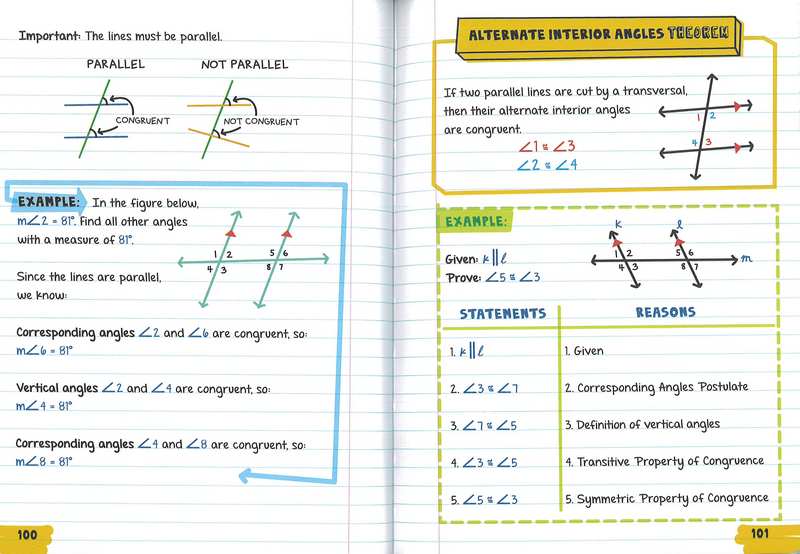 Important: The lines must be parallel.
PARALLEL
NOT PARALLEL
CONGRUENT
NOT CONGRUENT
EXAMPLE: In the figure below,
m∠2 = 81°. Find all other angles
with a measure of 81°.
1 2
4 3
5 6
8 7
Since the lines are parallel,
we know:
Corresponding angles ∠2 and ∠6 are congruent, so:
m∠6 = 81°
Vertical angles ∠2 and ∠4 are congruent, so:
m∠4 = 81°
Corresponding angles ∠4 and ∠8 are congruent, so:
m∠8 = 81°
100
ALTERNATE INTERIOR ANGLES THEOREM
If two parallel lines are cut by a transversal,
then their alternate interior angles
are congruent.
∠1 ≅ ∠3
∠2 ≅ ∠4
1 2
4 3
EXAMPLE:
Given: k∥l
Prove: ∠5 ≅ ∠3
k l
1 2 5 6
4 3 8 7
m
STATEMENTS REASONS
1. k∥l 1. Given
2. ∠3 ≅ ∠7 2. Corresponding Angles Postulate
3. ∠7 ≅ ∠5 3. Definition of vertical angles
4. ∠3 ≅ ∠5 4. Transitive Property of Congruence
5. ∠5 ≅ ∠3 5. Symmetric Property of Congruence
101